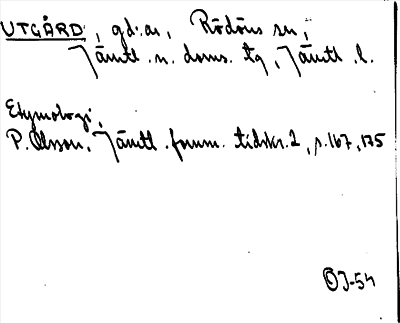 UTGÅRD, gd.ar, Rödöns sn,
Jämtl. n. doms. tg, Jämtl. l.
Etymologi,
P. Olsson, Jämtl. fornm. tidskr. 2, s. 167, 175
ÖJ-54